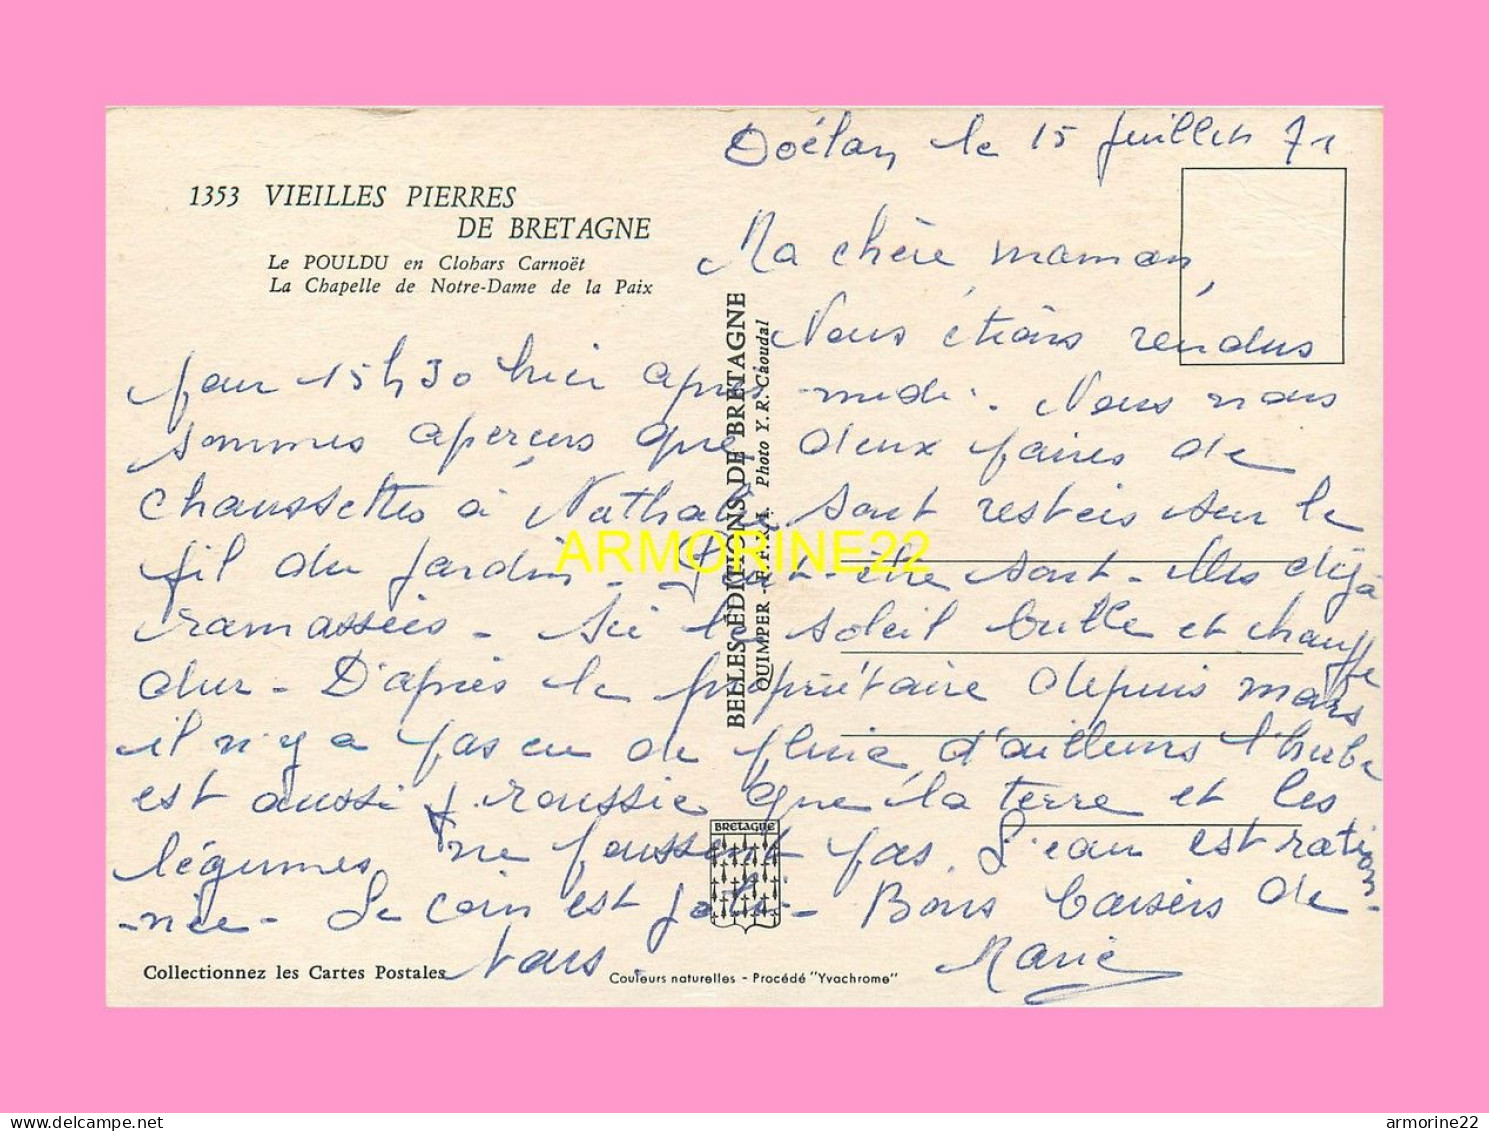 Doélan le 15 juillet 71
1353 VIEILLES PIERRES
DE BRETAGNE
Le POULDU en Clohars Carnoët
La Chapelle de Notre-Dame de la Paix
Ma chère maman,
Nous étions rendus
pour 15h30 hier après-midi. Nous nous
sommes aperçus que deux paires de
chaussettes à Nathalie sont restées sur le
fil du jardin - Peut-être sont-elles déjà
ramassées - Ici le soleil brille et chauffe
dur - D'après le propriétaire depuis mars
il n'y a pas eu de pluie, d'ailleurs l'herbe
est aussi roussie que la terre et les
légumes ne poussent pas. L'eau est ration-
-née - Le coin est joli - Bons baisers de
Nous. Marie
BELLES ÉDITIONS DE BRETAGNE
QUIMPER - Photo Y. R. Caoudal
ARMORINE22
BRETAGNE
Collectionnez les Cartes Postales
Couleurs naturelles - Procédé "Yvachrome"
delcampe.net
armorine22